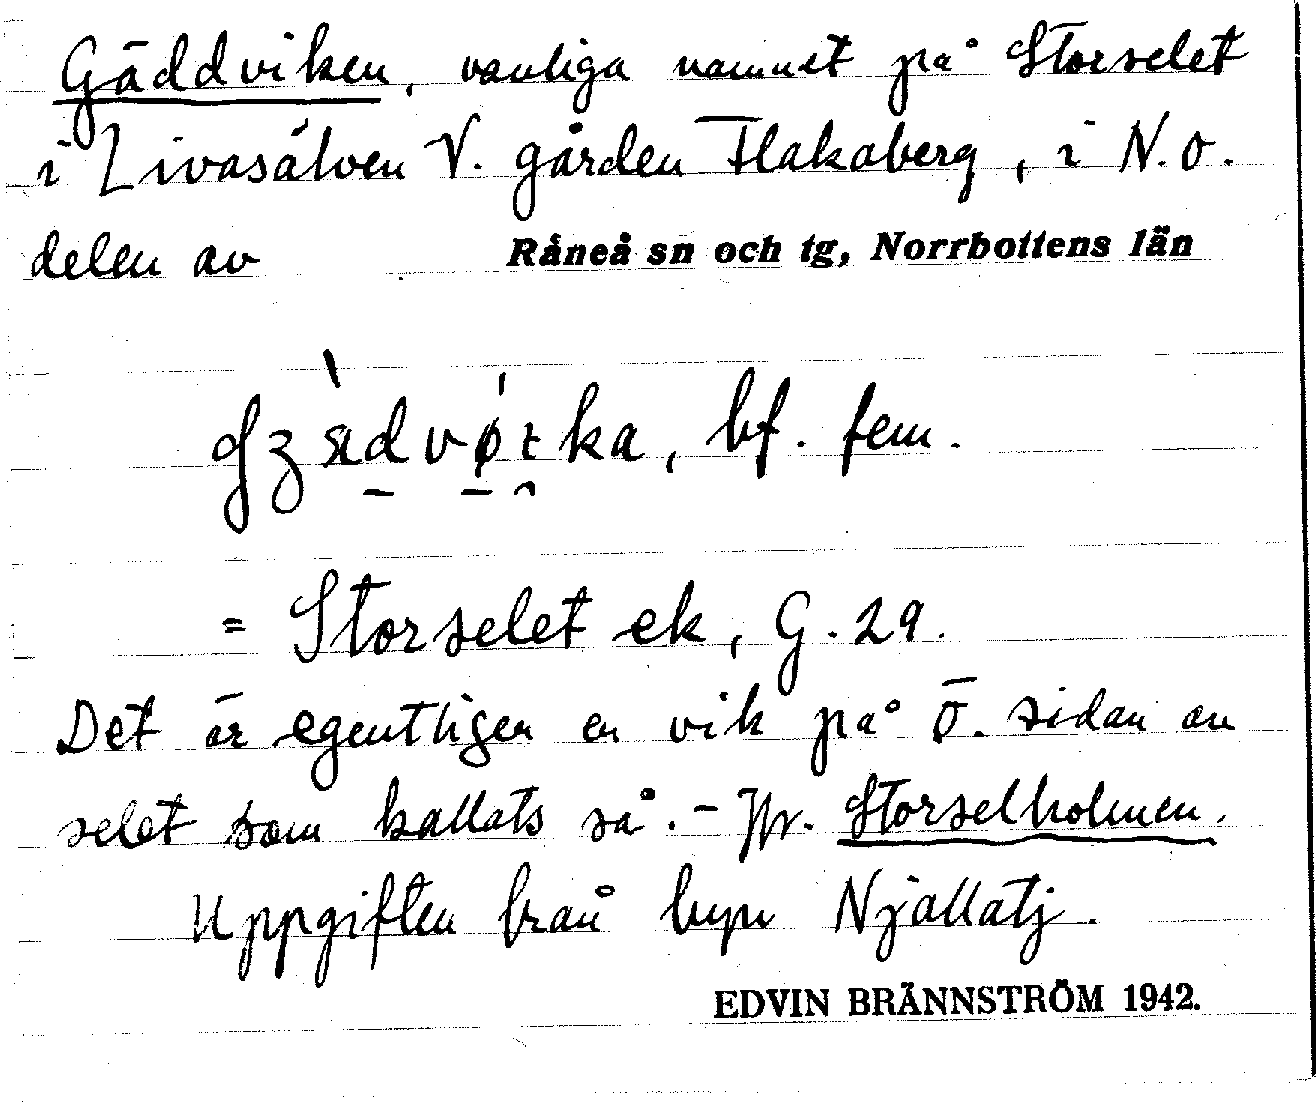 Gäddviken, vanliga namnet på Storselet
i Livasälven V. gården Flakaberg, i N.O.
delen av Råneå sn och tg, Norrbottens län
bf. fem.
= Storselet ek, G. 29.
Det är egentligen en vik på Ö. sidan av
selet som kallats så. - Jfr. Storselholmen.
Uppgiften från byn Njallatj.
EDVIN BRÄNNSTRÖM 1942.